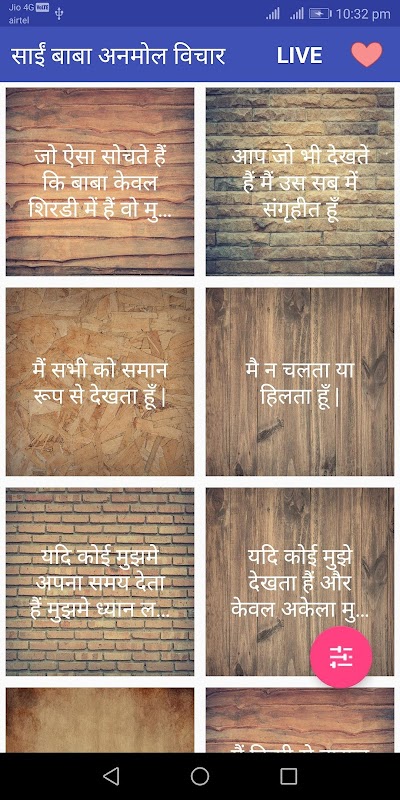 Jio 4G
airtel
10:32 pm
साईं बाबा अनमोल विचार
LIVE
जो ऐसा सोचते हैं
कि बाबा केवल
शिरडी में हैं वो मु...
आप जो भी देखते
हैं मैं उस सब में
संगृहीत हूँ
मैं सभी को समान
रूप से देखता हूँ |
मै न चलता या
हिलता हूँ |
यदि कोई मुझमे
अपना समय देता
हैं मुझमे ध्यान ल...
यदि कोई मुझे
देखता हैं और
केवल अकेला मु...